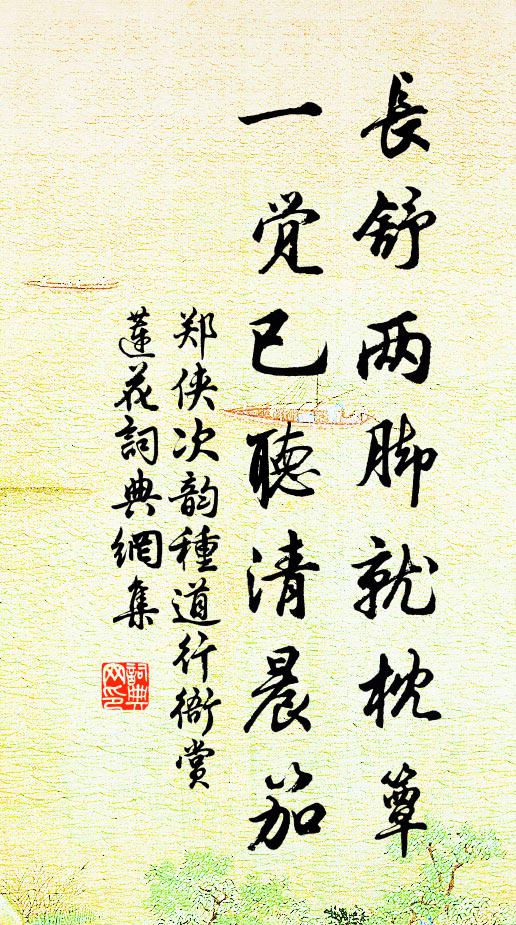 長舒两脚就枕簟
一觉已聽清晨笳
郑侠次韵種道行衙赏
蓮花詞典網集
詞典
网印